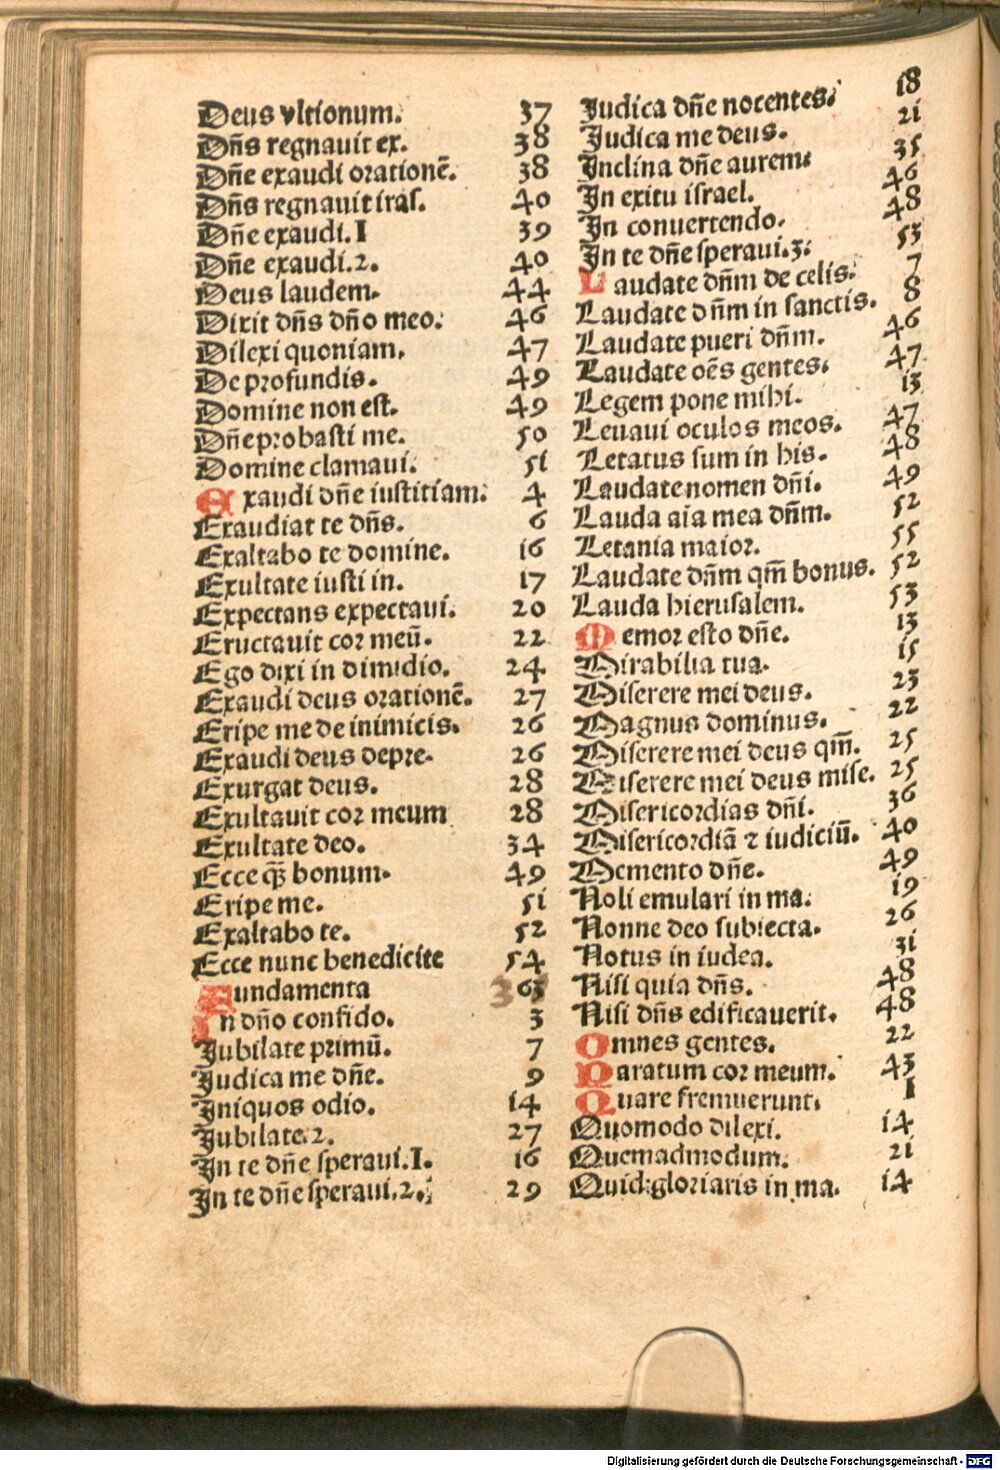 Deus vltionum. 37
Dñs regnauit ex. 38
Dñe exaudi orationē. 38
Dñs regnauit iras. 40
Dñe exaudi. I 39
Dñe exaudi. 2. 40
Deus laudem. 44
Dixit dñs dño meo. 46
Dilexi quoniam. 47
De profundis. 49
Domine non est. 49
Dñe probasti me. 50
Domine clamaui. 51
Exaudi dñe iustitiam. 4
Exaudiat te dñs. 6
Exaltabo te domine. 16
Exultate iusti in. 17
Expectans expectaui. 20
Eructauit cor meū. 22
Ego dixi in dimidio. 24
Exaudi deus orationē. 27
Eripe me de inimicis. 26
Exaudi deus depre. 26
Exurgat deus. 28
Exultauit cor meum 28
Exultate deo. 34
Ecce q̃ bonum. 49
Eripe me. 51
Exaltabo te. 52
Ecce nunc benedicite 54
Fundamenta 63
In dño confido. 3
Iubilate primū. 7
Iudica me dñe. 9
Iniquos odio. 14
Iubilate. 2. 27
In te dñe speraui. I. 16
In te dñe speraui. 2. 29
Iudica dñe nocentes. 18
Iudica me deus. 21
Inclina dñe aurem. 35
In exitu israel. 46
In conuertendo. 48
In te dñe speraui. 3. 53
Laudate dñm de celis. 7
Laudate dñm in sanctis. 8
Laudate pueri dñm. 46
Laudate oēs gentes. 47
Legem pone mihi. 13
Leuaui oculos meos. 47
Letatus sum in his. 48
Laudate nomen dñi. 49
Lauda aīa mea dñm. 52
Letania maior. 55
Laudate dñm qm̄ bonus. 52
Lauda hierusalem. 53
Memor esto dñe. 13
Mirabilia tua. 15
Miserere mei deus. 23
Magnus dominus. 22
Miserere mei deus qm̄. 25
Miserere mei deus mise. 25
Misericordias dñi. 36
Misericordiā ⁊ iudiciū. 40
Memento dñe. 49
Noli emulari in ma. 19
Nonne deo subiecta. 26
Notus in iudea. 31
Nisi quia dñs. 48
Nisi dñs edificauerit. 48
Omnes gentes. 22
Paratum cor meum. 43
Quare fremuerunt. I
Quomodo dilexi. 14
Quemadmodum. 21
Quid gloriaris in ma. 14
Digitalisierung gefördert durch die Deutsche Forschungsgemeinschaft - DFG